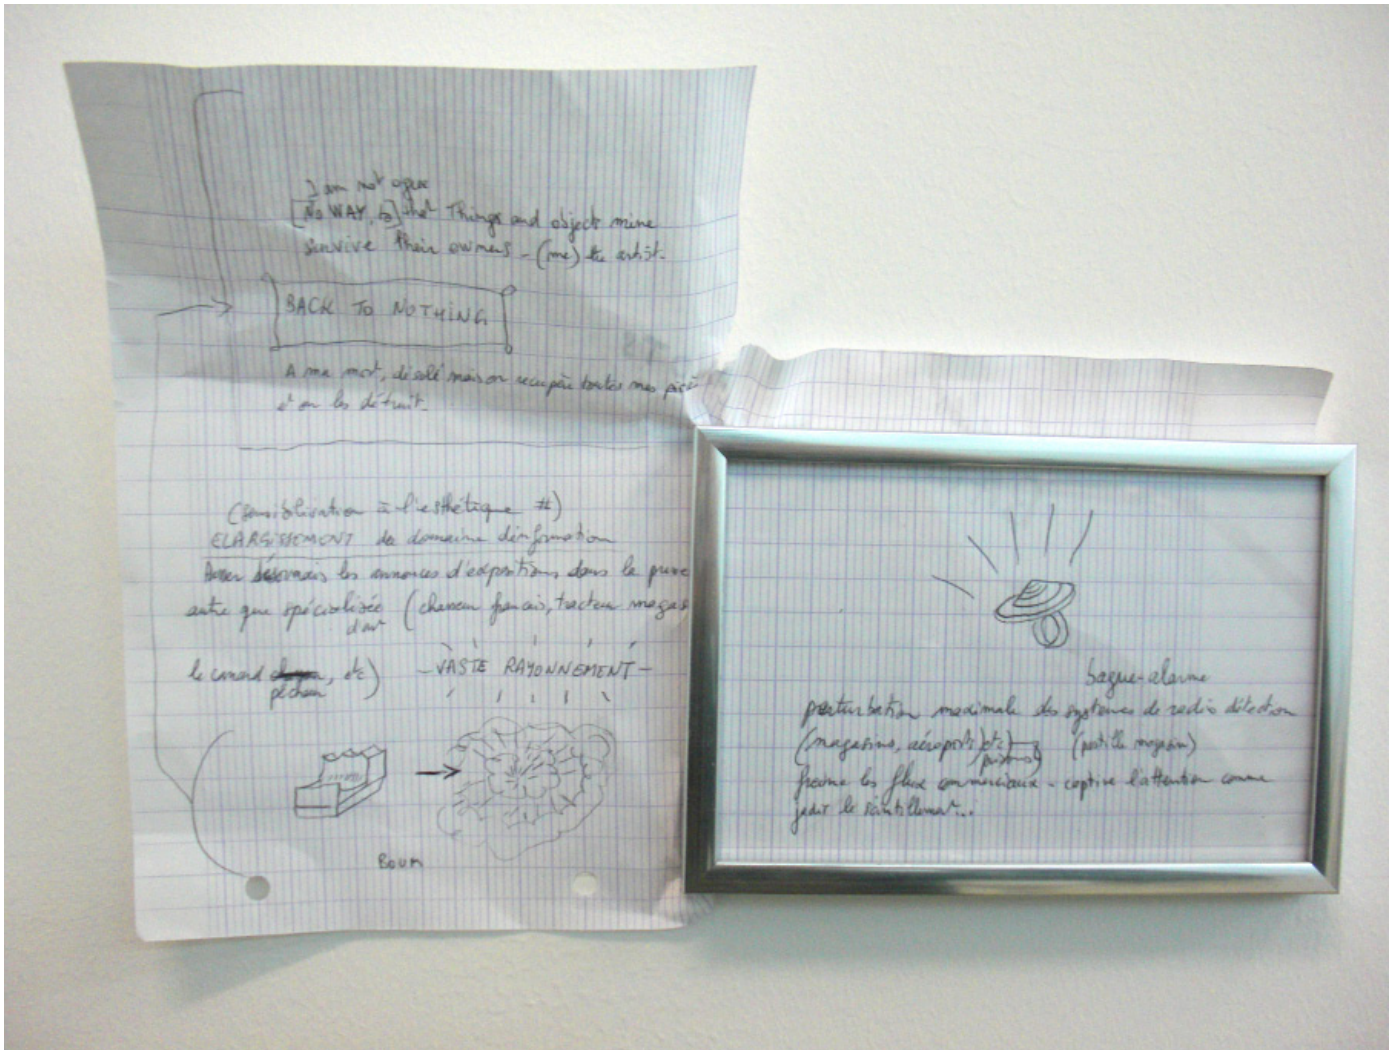 I am not ogre
[No WAY, to] that Things and objects mine
survive their owners - (me) the artist.
BACK TO NOTHING
A ma mort, désolé mais on récupère toutes mes
et on les détruit.
(Sensibilisation à l'esthétique #)
ELARGISSEMENT du domaine d'information
désormais les annonces d'expositions dans la presse
autre que spécialisée (chasseur français, tracteur magas
d'art
le canard, etc)
pêcheur
-VASTE RAYONNEMENT-
BOUM
bague-alarme
perturbation maximale des systèmes de radio détection
(magasins, aéroports, etc) (pastille magasin)
prisons
freine les flux commerciaux - captive l'attention comme
jadis le scintillement...